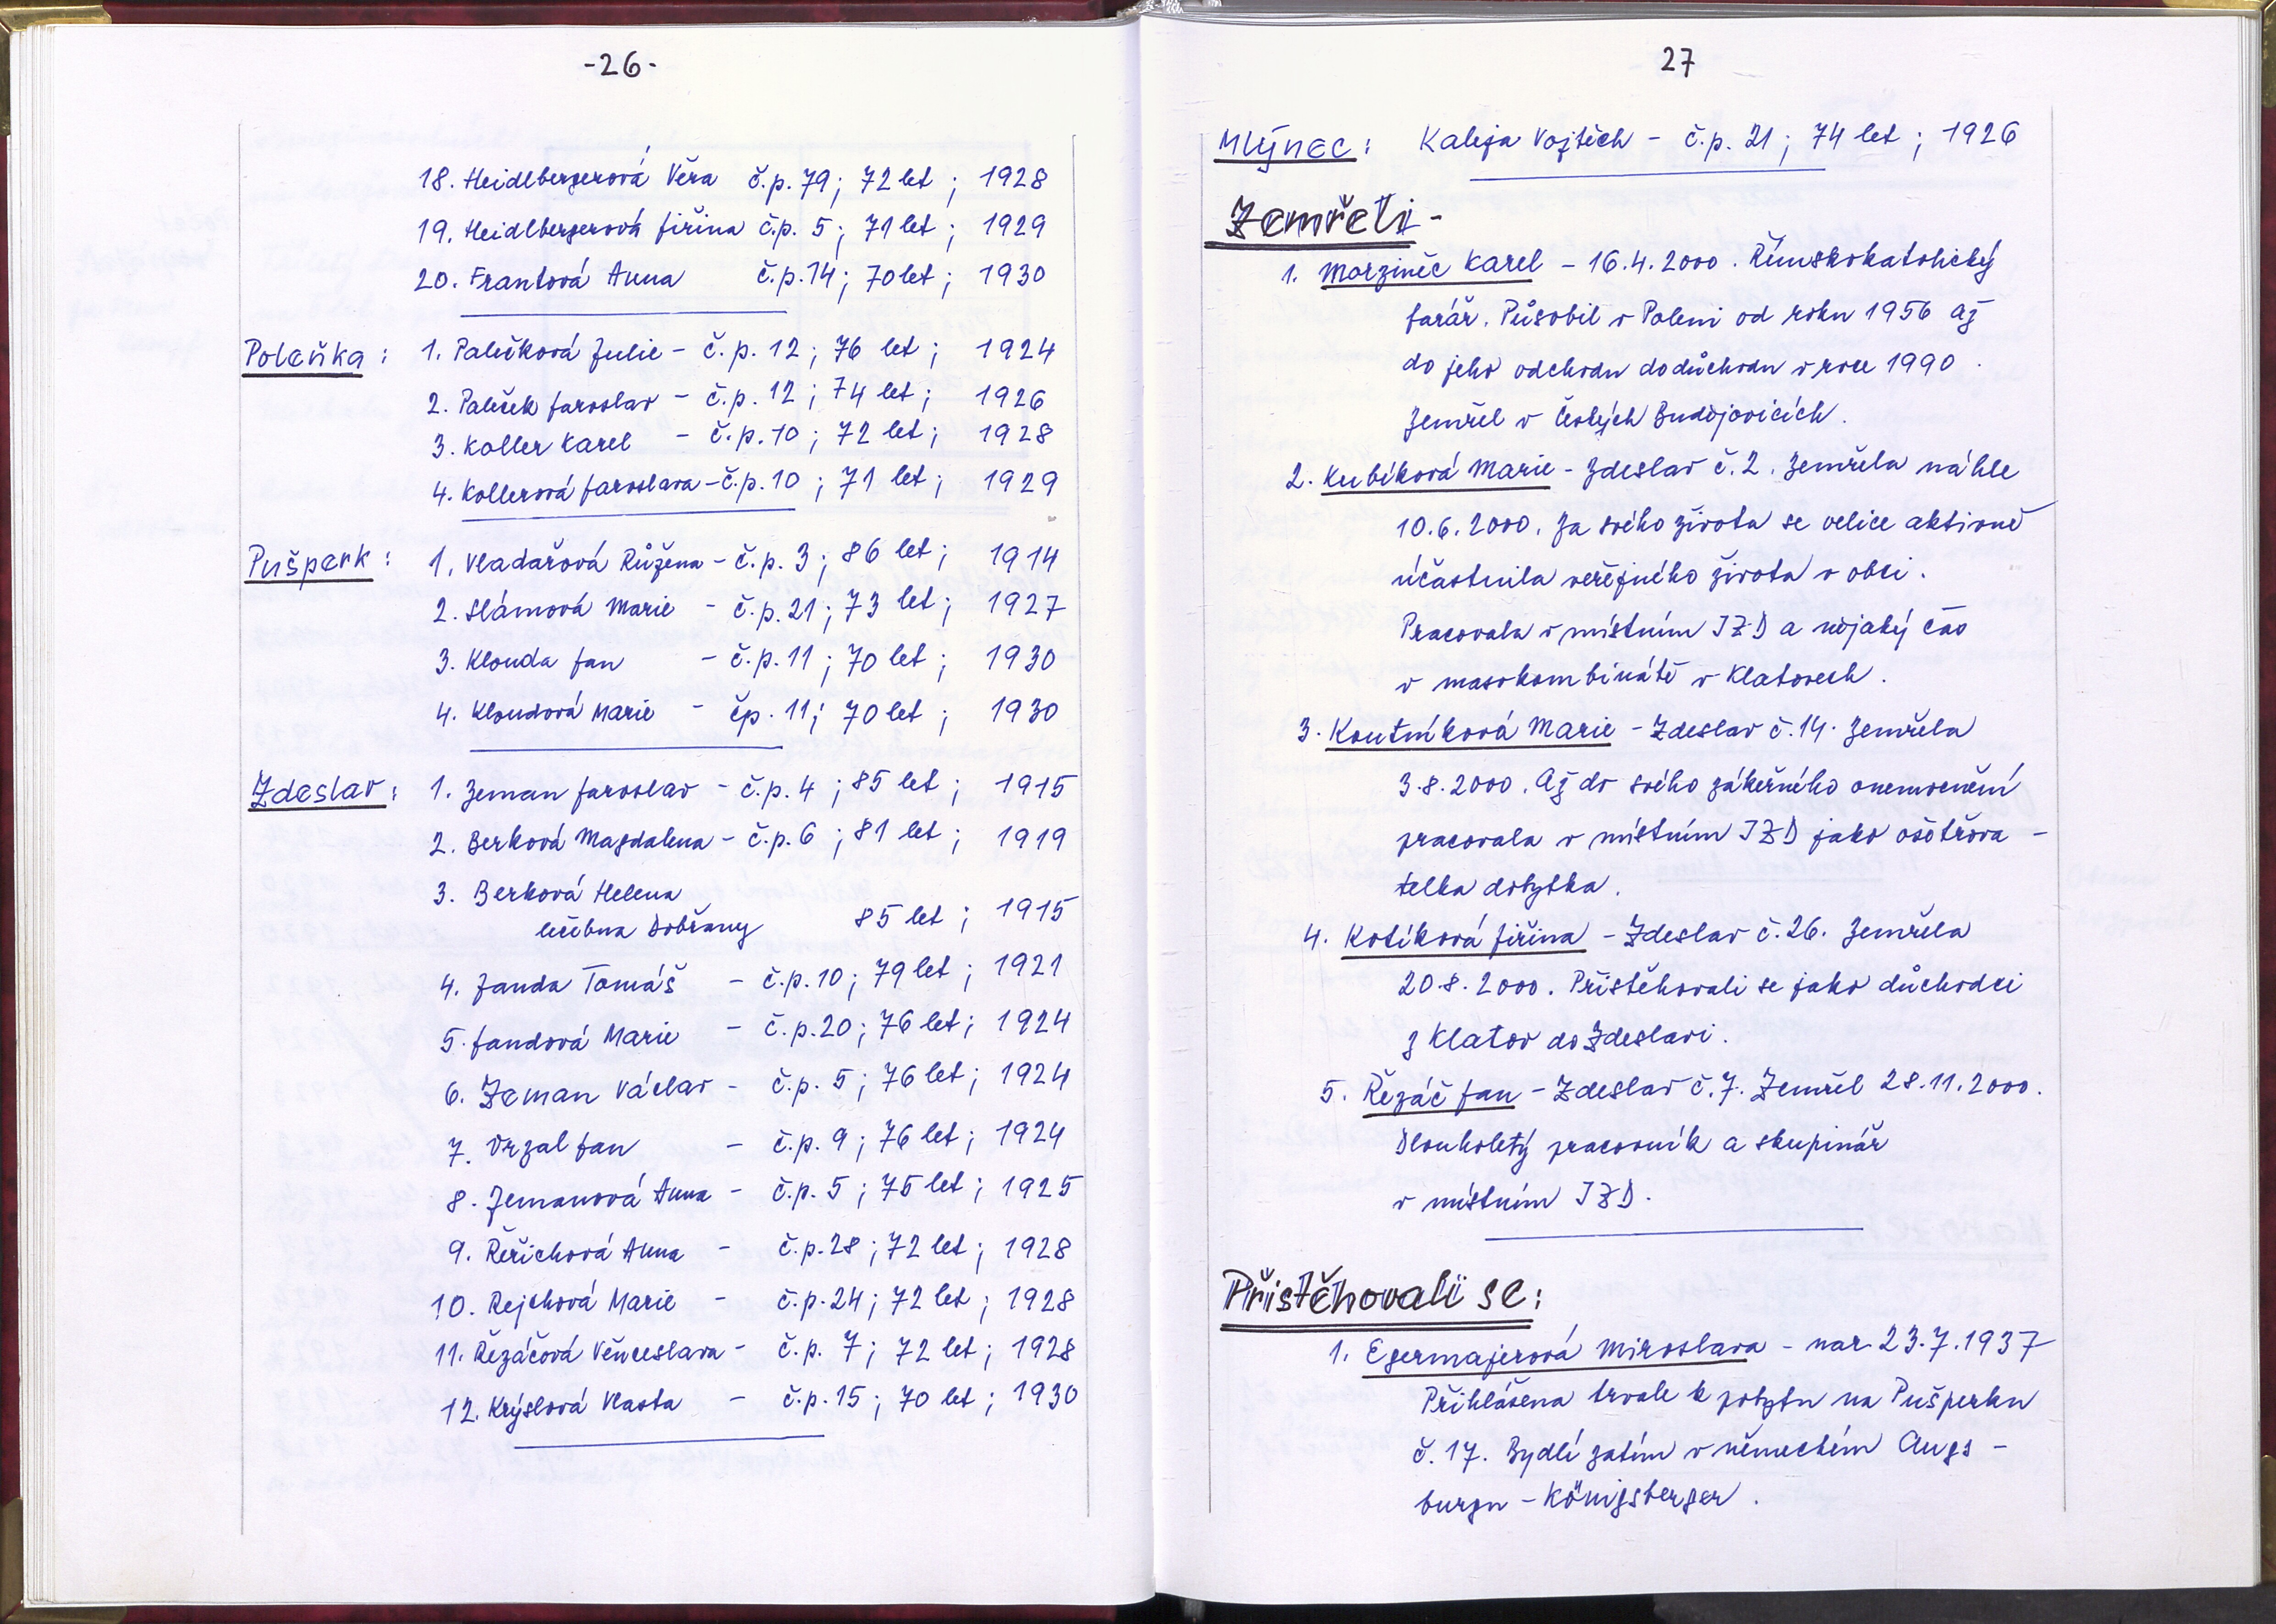 -26-
18. Heidlbergerová Věra č.p. 79; 72 let; 1928
19. Heidlbergerová Jiřina č.p. 5; 71 let; 1929
20. Frantová Anna č.p. 14; 70 let; 1930
Poleňka: 1. Palečková Julie - č.p. 12; 76 let; 1924
2. Paleček Jaroslav - č.p. 12; 74 let; 1926
3. Koller Karel - č.p. 10; 72 let; 1928
4. Kollerová Jaroslava - č.p. 10; 71 let; 1929
Pušperk: 1. Vladařová Růžena - č.p. 3; 86 let; 1914
2. Slámová Marie - č.p. 21; 73 let; 1927
3. Klouda Jan - č.p. 11; 70 let; 1930
4. Kloudová Marie - čp. 11; 70 let; 1930
Zdeslav: 1. Zeman Jaroslav - č.p. 4; 85 let; 1915
2. Berková Magdalena - č.p. 6; 81 let; 1919
3. Berková Helena
léčebna Dobřany 85 let; 1915
4. Janda Tomáš - č.p. 10; 79 let; 1921
5. Jandová Marie - č.p. 20; 76 let; 1924
6. Zeman Václav - č.p. 5; 76 let; 1924
7. Vrzal Jan - č.p. 9; 76 let; 1924
8. Zemanová Anna - č.p. 5; 75 let; 1925
9. Řeřichová Anna - č.p. 28; 72 let; 1928
10. Rejchová Marie - č.p. 24; 72 let; 1928
11. Řezáčová Věnceslava - č.p. 7; 72 let; 1928
12. Krýslová Vlasta - č.p. 15; 70 let; 1930
27
Mlýnec: Kaleja Vojtěch - č.p. 21; 74 let; 1926
Zemřeli -
1. Morzinec Karel - 16.4.2000. Římskokatolický
farář. Působil v Poleni od roku 1956 až
do jeho odchodu do důchodu v roce 1990.
Zemřel v Českých Budějovicích.
2. Kubíková Marie - Zdeslav č. 2. Zemřela náhle
10.6.2000. Za svého života se velice aktivně
účastnila veřejného života v obci.
Pracovala v místním JZD a nějaký čas
v masokombinátě v Klatovech.
3. Koutníková Marie - Zdeslav č. 14. Zemřela
3.8.2000. Až do svého zákeřného onemocnění
pracovala v místním JZD jako ošetřova -
telka dobytka.
4. Kotíková Jiřina - Zdeslav č. 26. Zemřela
20.8.2000. Přistěhovali se jako důchodci
z Klatov do Zdeslavi.
5. Řezáč Jan - Zdeslav č. 7. Zemřel 28.11.2000.
Dlouholetý pracovník a skupinář
v místním JZD.
Přistěhovali se:
1. Egermajerová Miroslava - nar. 23.7.1937
Přihlášena trvale k pobytu na Pušperku
č. 17. Bydlí zatím v německém Augs -
burgu - Königsberger.